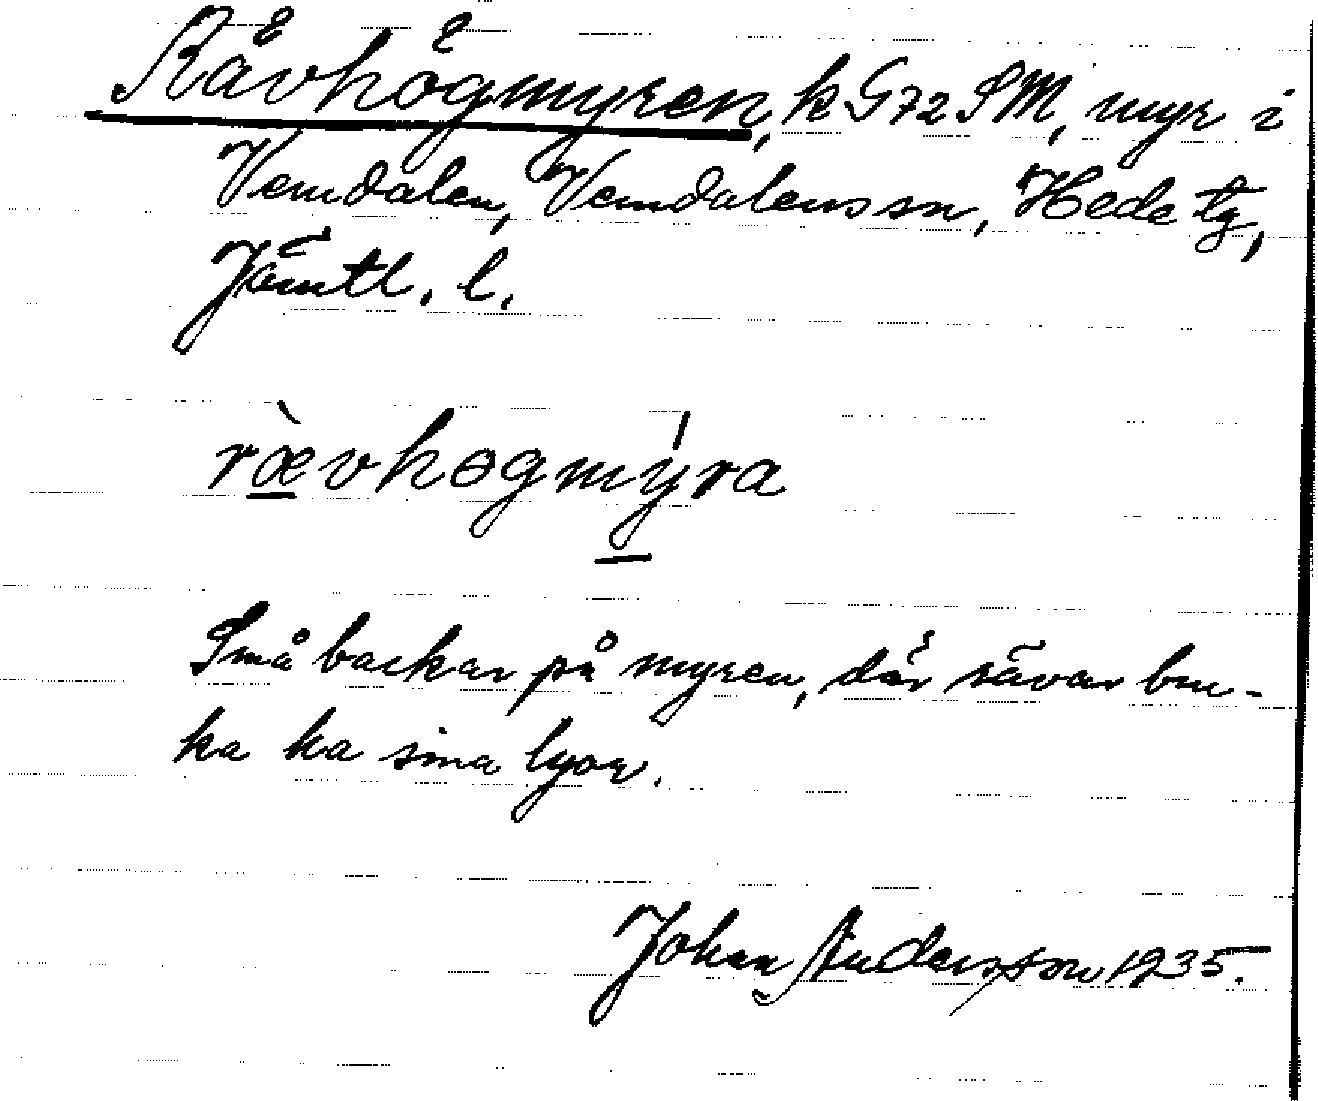 Rävhögmyren, k G72 SM, myr i
Vemdalen, Vemdalens sn, Hede tg,
Jämtl. l.
rævhøgmyra
Små backar på myren, där rävar bru-
ka ha sina lyor.
Johan Andersson 1935.